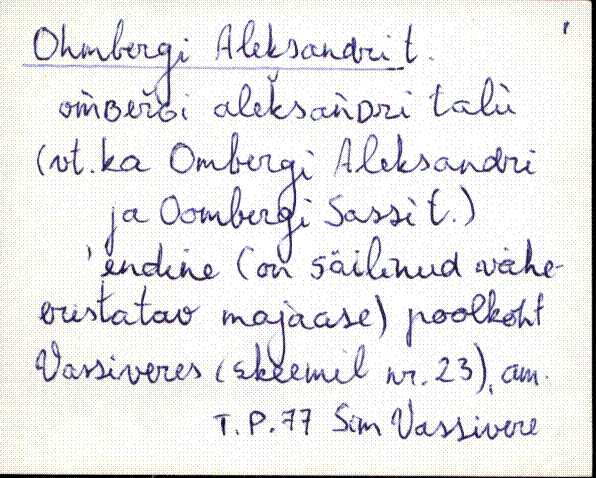 Ohmbergi Aleksandri t.
om̀ʙeŕɢi aleksanDri talù
(vt. ka Ombergi Aleksandri
ja Oombergi Sassi t.)
'endine (on säilinud vähe-
eristatav majaase) poolkoht
Vassiveres (skeemil nr. 23), am.
T.P.77 Sim Vassivere